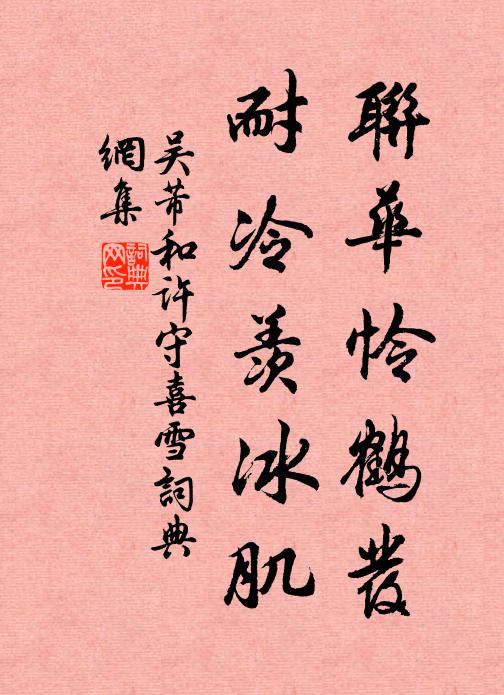 聯華怜鶴發
耐冷羨冰肌
吴芾和許守喜雪詞典
網集
詞典網印